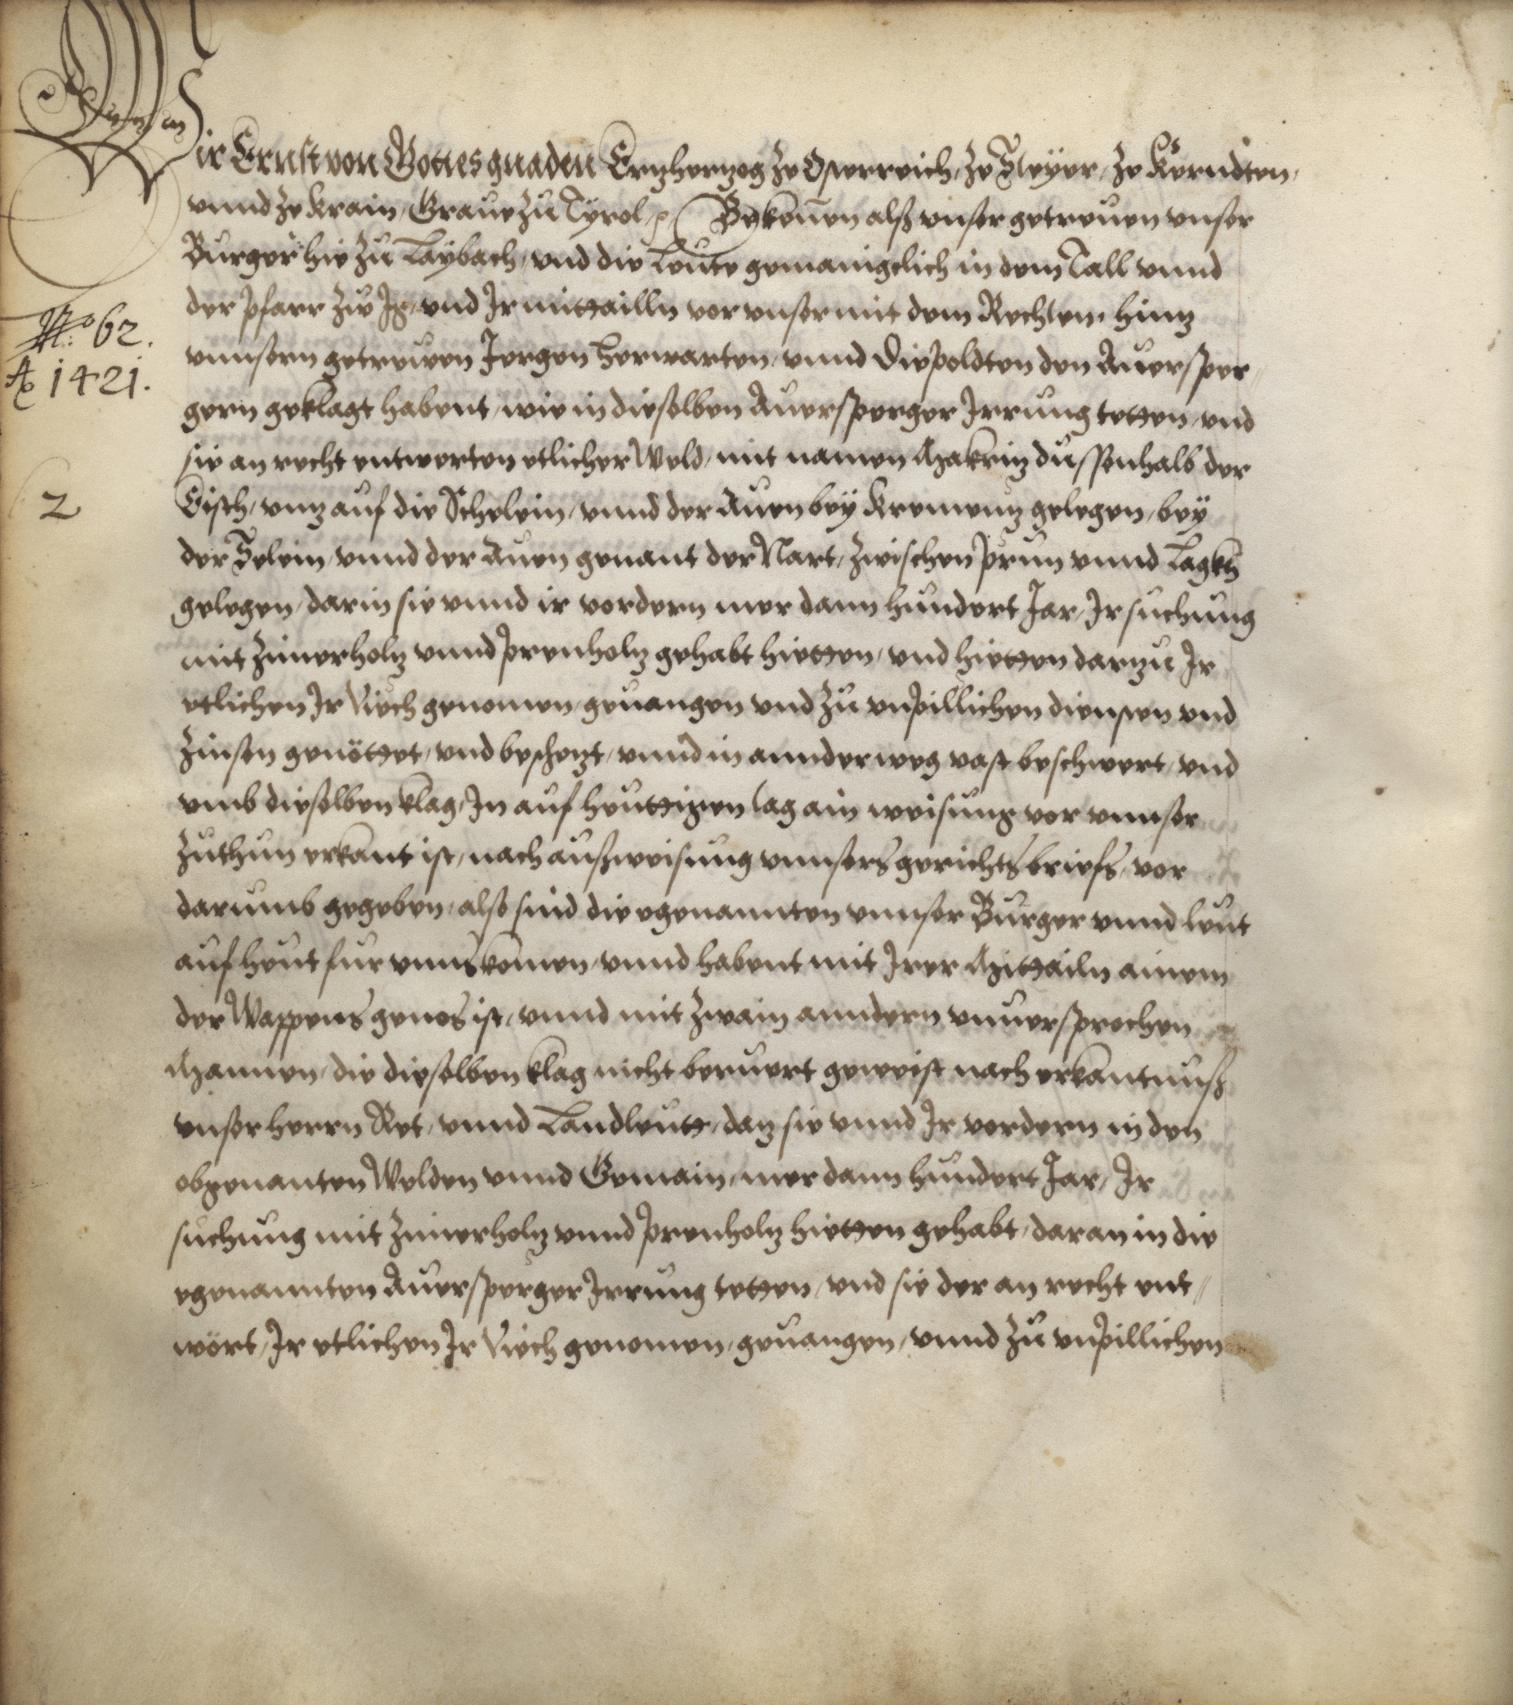 Wir Ernst von Gottes gnaden Ertzhertzog ze Osterreich, ze Steyer, ze Kerndten,
vnnd ze Krain, Graue zu Tyrol, Bekennen alß vnser getreuen vnser
Burger hie zu Laybach, vnd die Leute gemainigclich in dem Tall vnnd
der Pfarr zw Ig, vnd Ir mittailln vor vnser mit dem Rechten, hintz
No: 62.
vnnsern getrewen Jorgen Herwarten, vnnd Diepoldten den Auersper-
Ao 1421.
gern geklagt habent, wie in dieselben Auersperger Irrung tetten, vnd
sie an recht entwerten etlicher Weld, mit namen Makritz dussenhalb der
2
Eisch, vntz auf die Schelein, vnnd der Auen bey Krementz gelegen, bey
der Selein, vnnd der Auen genant der Nart, zwischen Prun vnnd Lagkh
gelegen, darin sie vnnd ir vordern mer dann hundert Jar, Ir suchung
mit Zimerholtz vnnd Prenholtz gehabt hietten, vnd hietten dartzu Ir
etlichen Ir Viech genomen, geuangen vnd zu vnpillichen diensten vnd
Zinsen genöttet, vnd beschetzt, vnnd in annder weg vast beschwert, vnd
vmb dieselben klag, In auf heuttigen tag ain weisung vor vnnser
zuthun erkant ist, nach außweisung vnnsers gerichtsbriefs, vor
darumb gegeben, alß sind die egenannten vnnser Burger vnnd leut
auf heut fur vnns komen, vnnd habent mit Irer Mittailn ainem
der Wappens genos ist, vnnd mit zwain anndern vnuersprechen
Mannen, die dieselben klag nicht beruert geweist nach erkantnuß
vnser herrn Ret, vnnd Landleutt, daz sie vnnd Ir vordern in den
obgenanten Welden vnnd Gemain, mer dann hundert Jar, Ir
suchung mit Zimerholtz vnnd Prenholtz hietten gehabt, daran in die
egenannten Auersperger Irrung tetten, vnd sie der an recht ent-
wört, Ir etlichen Ir Viech genomen, geuangen, vnnd zu vnpillichen